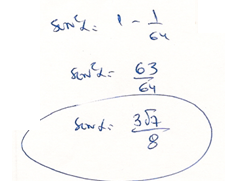 sen²α = 1 - 1/64
sen²α = 63/64
sen α = 3√7/8